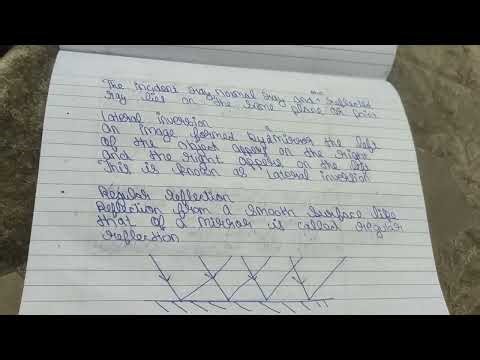 The incident ray, normal ray and the reflected
ray lies on the same place or point
lateral inversion
an image formed by a mirror the left
of the object appears on the right
and the right appears on the left
This is known as lateral inversion
Regular reflection
Reflection from a smooth surface like
that of a mirror is called regular
reflection